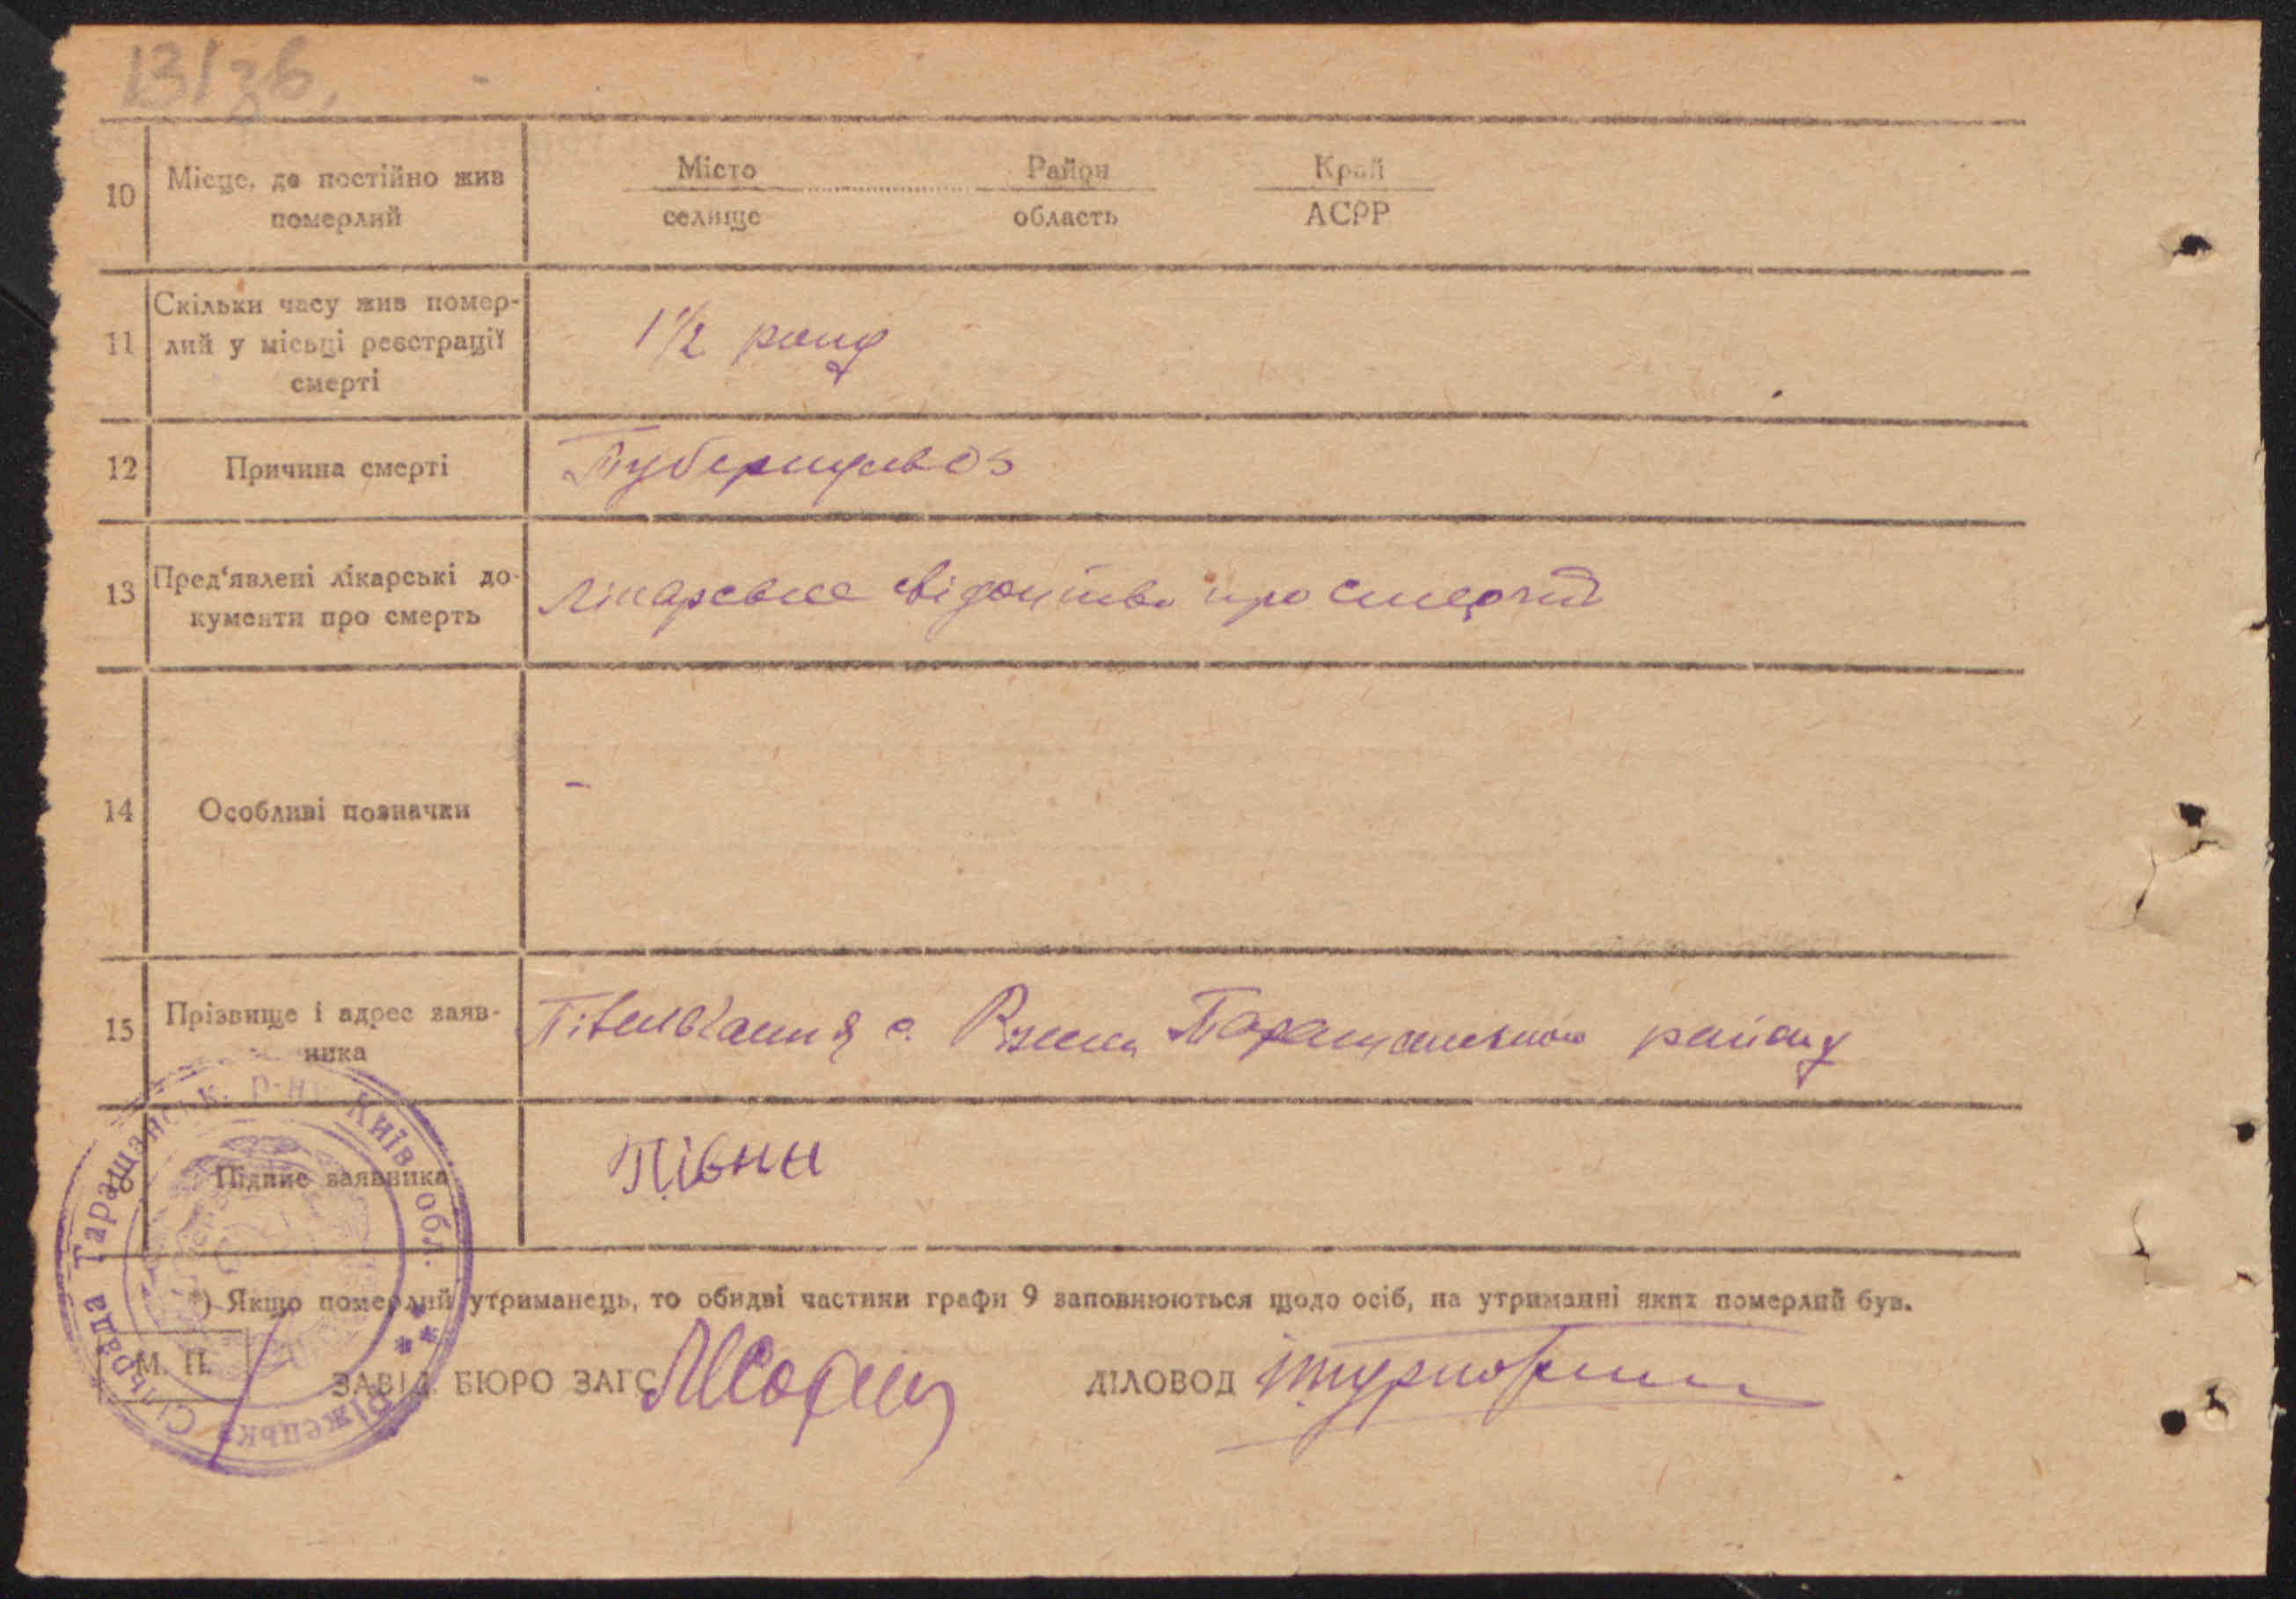 131зв.
10 Місце, де постійно жив
померлий
Місто Район Край
селище область АСРР
11 Скільки часу жив помер-
лий у місьці реєстрації
смерті
1 1/2 року
12 Причина смерті Туберкульоз
13 Пред'явлені лікарські до-
кументи про смерть
Лікарське свідоцтво про смерть
14 Особливі позначки -
15 Прізвище і адрес заяв-
ника
с. Ріжки Таращанського району
Підпис заявника Півнн
*) Якщо померлий утриманець, то обидві частини графи 9 заповнюються щодо осіб, на утриманні яких померлий був.
М. П.
ЗАВІД. БЮРО ЗАГС ДІЛОВОД
Сільрада Таращанськ. р-ну Київ. обл.